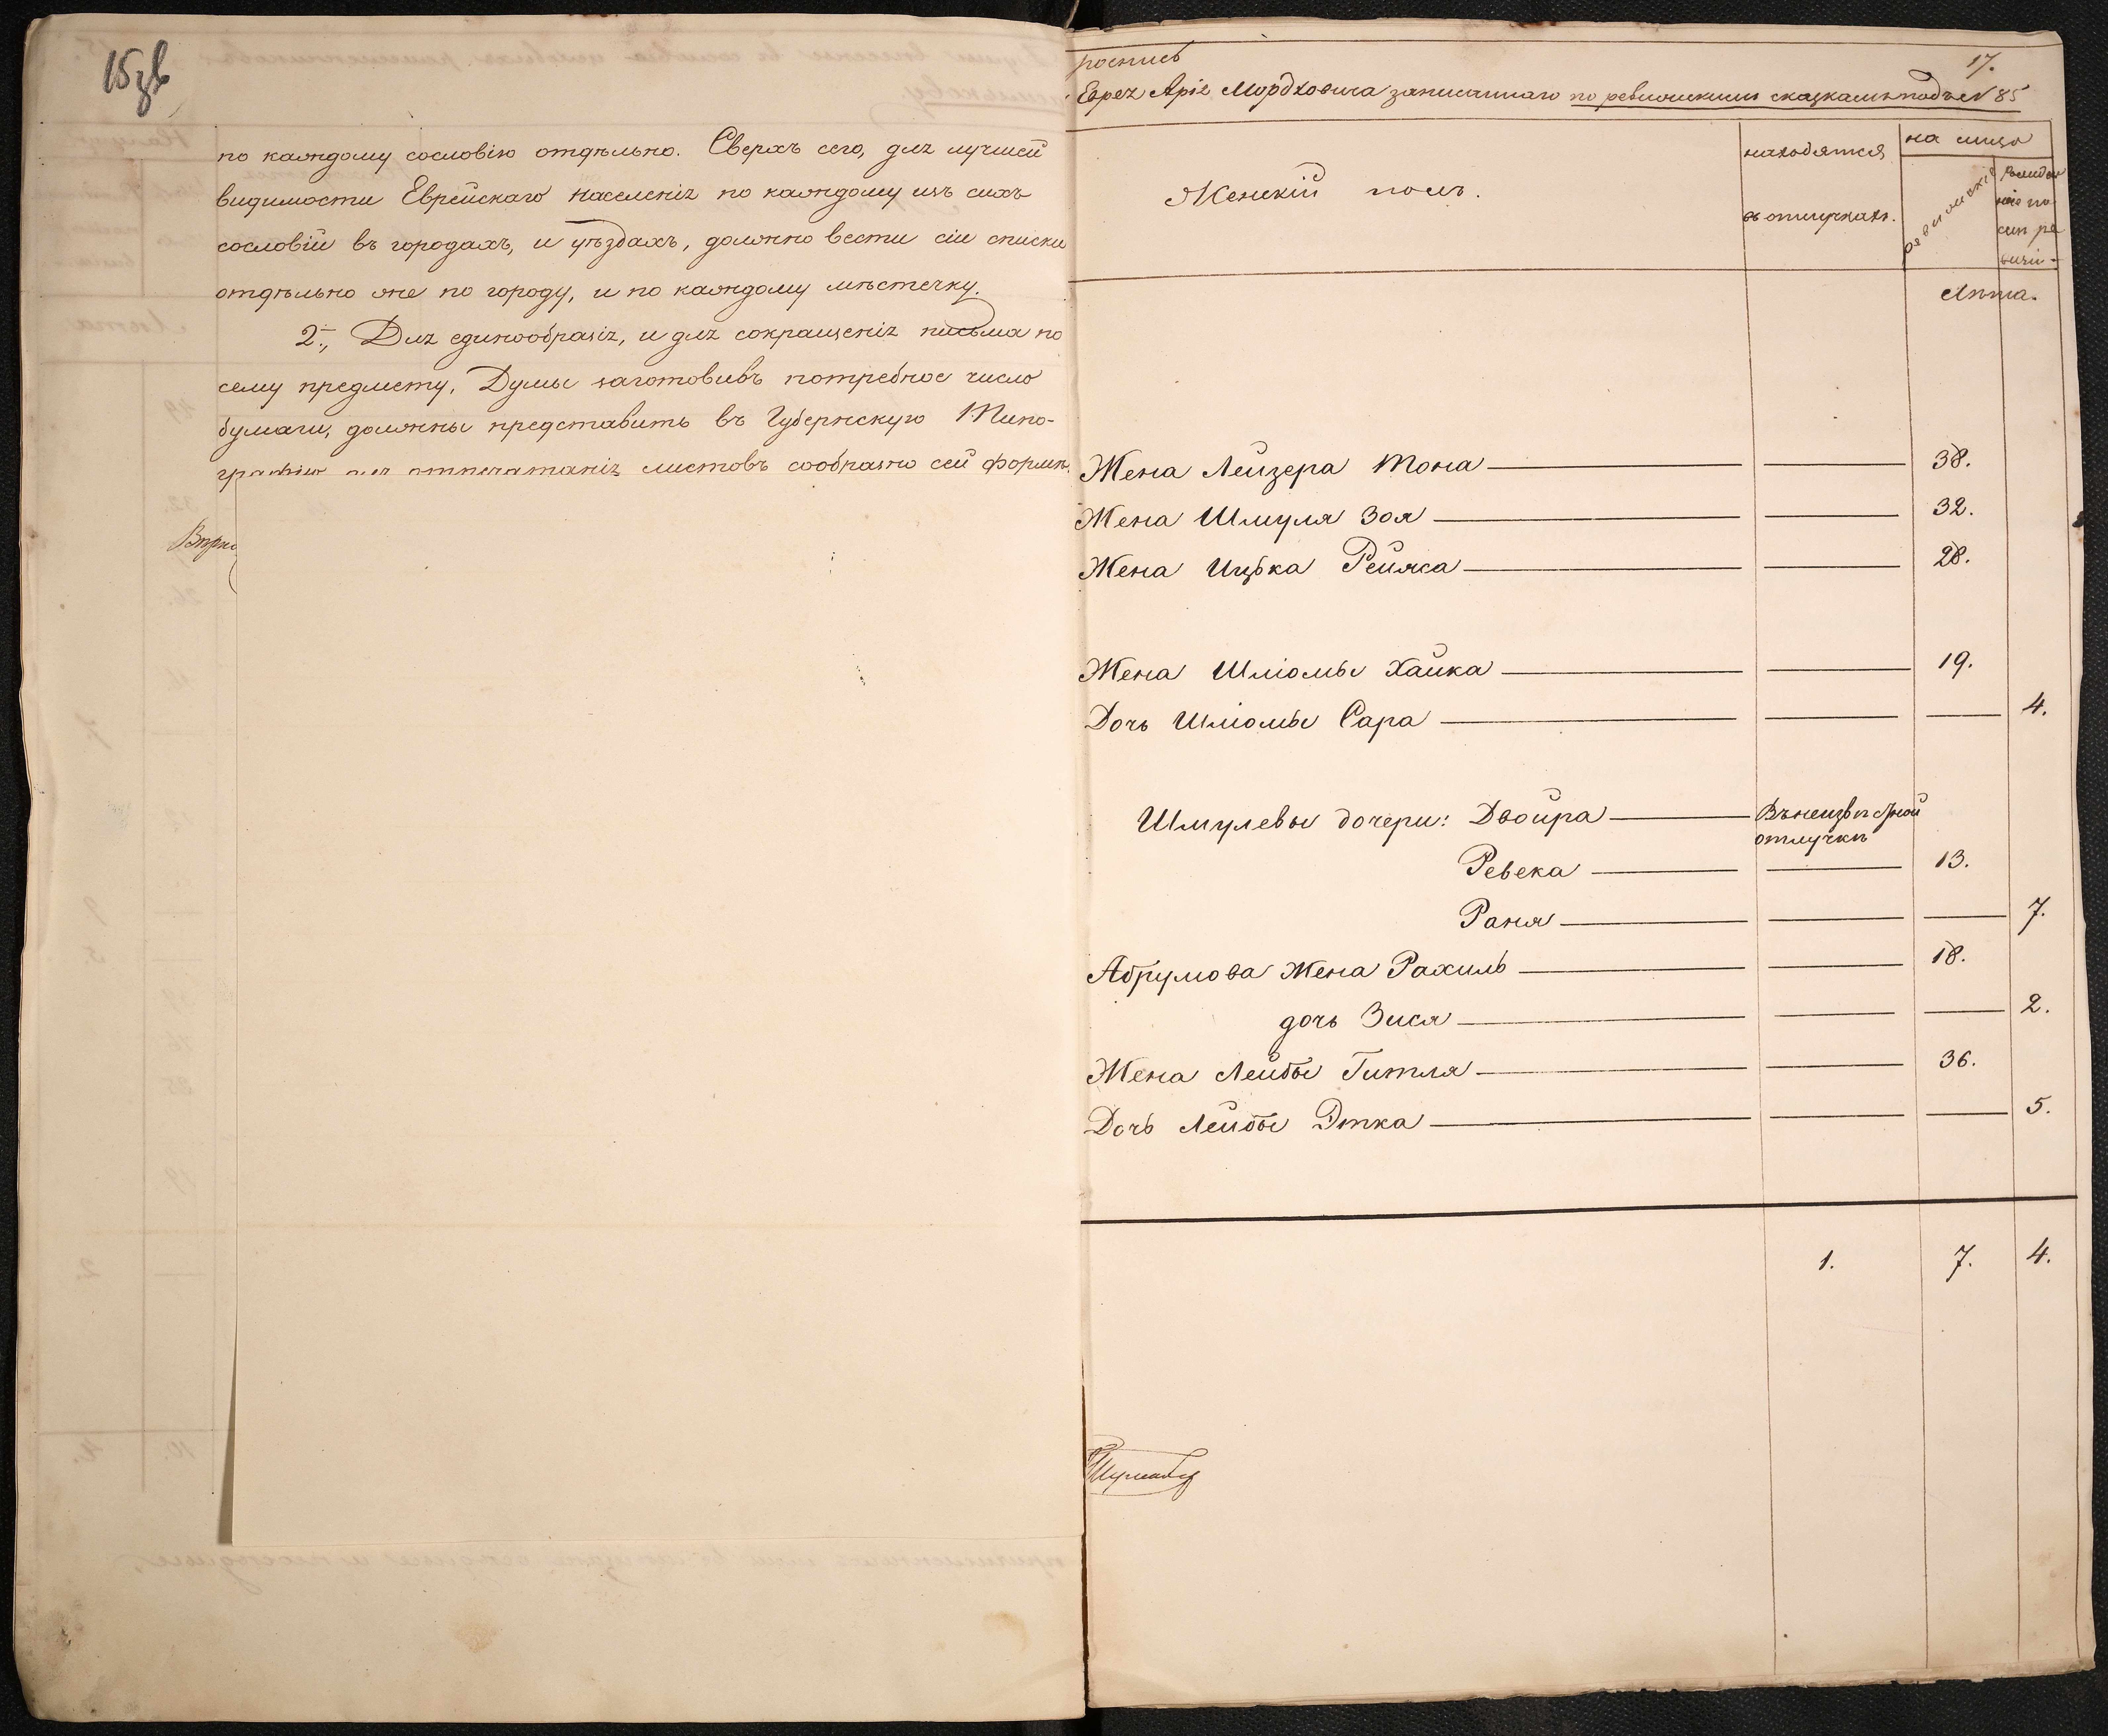 15 зв
по каждому сословію отдѣльно. Сверхъ сего, для лучшей
видимости Еврейскаго населенія по каждому изъ сихъ
сословій въ городахъ, и уѣздахъ, должно вести сіи списки
отдѣльно же по городу, и по каждому мѣстечку.
2., Для единообразія, и для сокращенія письма по
сему предмету, Думы заготовивъ потребное число
бумаги, должны представить въ Губернскую Типо-
графію для отпечатанія листовъ сообразно сей формѣ.
Вѣрно
роспись
17.
Еврея Аріе Мордховича записаннаго по ревизскимъ сказкамъ подъ № 85
Женскій полъ.
находятся
въ отлучкахъ.
на лицо
ревизскіе
рожден
ніе по
слѣ ре
визіи
Лѣта.
Жена Лейзера Тона 38.
Жена Шмуля Зоя 32.
Жена Ицька Рейяса 28.
Жена Шліомы Хайка 19.
Дочь Шліомы Сара 4.
Шмулевы дочери: Двойра Въ неизвѣстной
отлучкѣ
Ревека 13.
Раня 7.
Абрумова Жена Рахиль 18.
дочь Зися 2.
Жена Лейбы Гитля 36.
Дочь Лейбы Этка 5.
1. 7. 4.